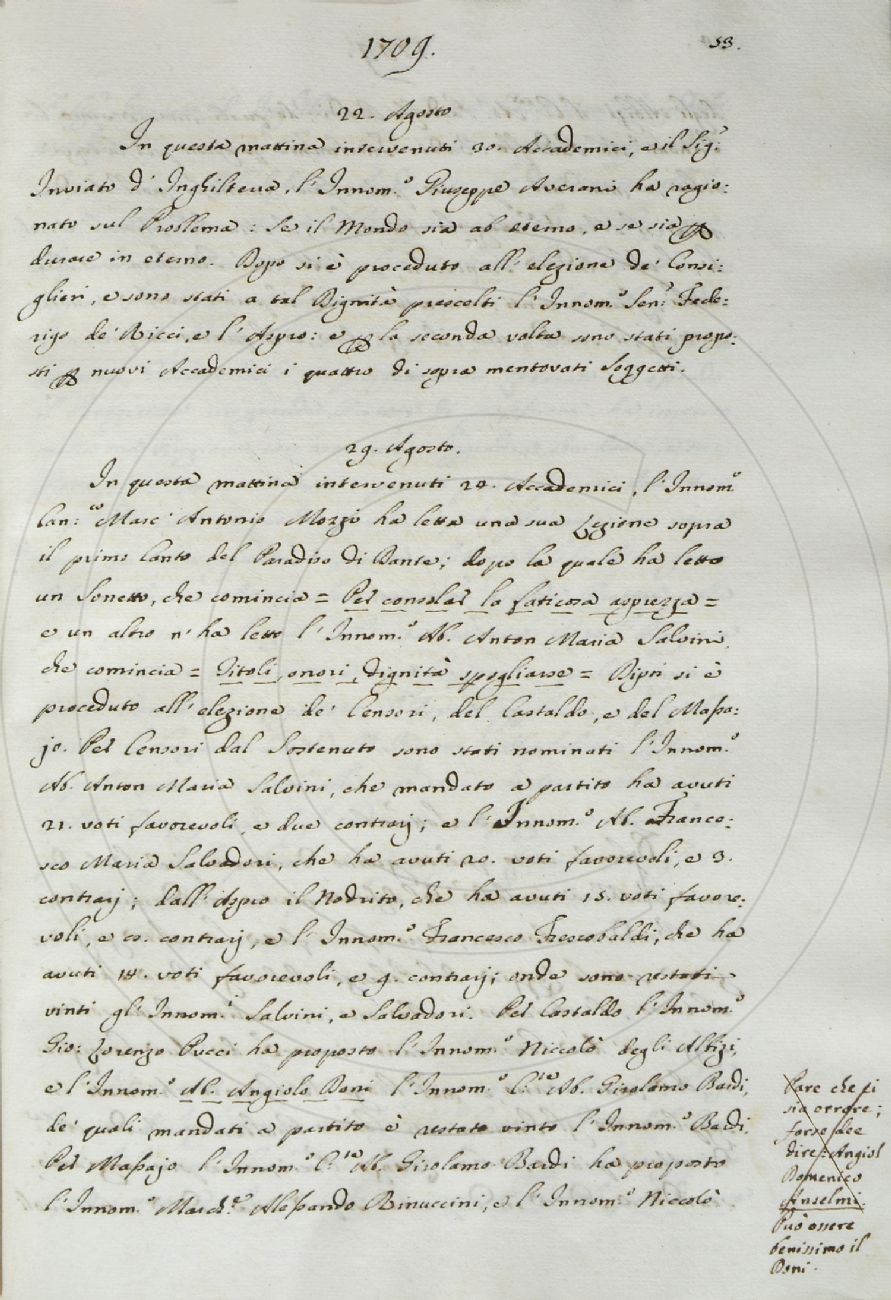 1709.
53.
22. Agosto
In questa mattina intervenuti 30. Accademici, e il Sig.r
Inviato d'Inghilterra, l'Innom.o Giuseppe Averani ha ragio:
nato sul Problema: Se il Mondo sia ab eterno, e se sia p
durare in eterno. Dopo si è proceduto all'elezione de' Consi:
glieri, e sono stati a tal Dignità prescelti l'Innom.o Sen.r Fede:
rigo de' Ricci, e l'Aspro: e p la seconda volta sono stati propo:
sti p nuovi Accademici i quattro di sopra mentovati Soggetti.
29. Agosto.
In questa mattina intervenuti 24. Accademici, l'Innom.o
Can:co Marc'Antonio Mozzi ha letta una sua Lezione sopra
il primo Canto del Paradiso di Dante; dopo la quale ha letto
un Sonetto, che comincia = Per consolar la faticosa asprezza =
e un altro n'ha letto l'Innom.o Ab. Anton Maria Salvini,
che comincia = Titoli, onori, dignità spogliarse = Dipoi si è
proceduto all'elezione de' Censori, del Castaldo, e del Massa:
jo. Per Censori dal Sostenuto sono stati nominati l'Innom.o
Ab. Anton Maria Salvini, che mandato a partito ha avuti
21. voti favorevoli, e due contrarj; e l'Innom.o Ab. France:
sco Maria Salvadori, che ha avuti 20. voti favorevoli, e 3.
contrarj; dall'Aspro il Nodrito, che ha avuti 15. voti favore:
voli, e co. contrarj, e l'Innom.o Francesco Frescobaldi, che ha
avuti 14. voti favorevoli, e 9. contrarj; onde sono restati
vinti gl'Innom.i Salvini, e Salvadori. Pel Castaldo l'Innom.o
Gio: Lorenzo Pucci ha proposto l'Innom.o Niccolò degli Albizi,
e l'Innom.o Ab. Angiolo Doni l'Innom.o C.te Ab. Girolamo Bardi,
de' quali mandati a partito è restato vinto l'Innom.o Bardi.
Pel Massajo l'Innom.o C.te Ab. Girolamo Bardi ha proposto
l'Innom.o March.e Alessandro Rinuccini, e l'Innom.o Niccolò
Pare che ci
sia errore;
forse dee
dire: Angiol
Domenico
Anselmi.
Può essere
benissimo il
Doni.